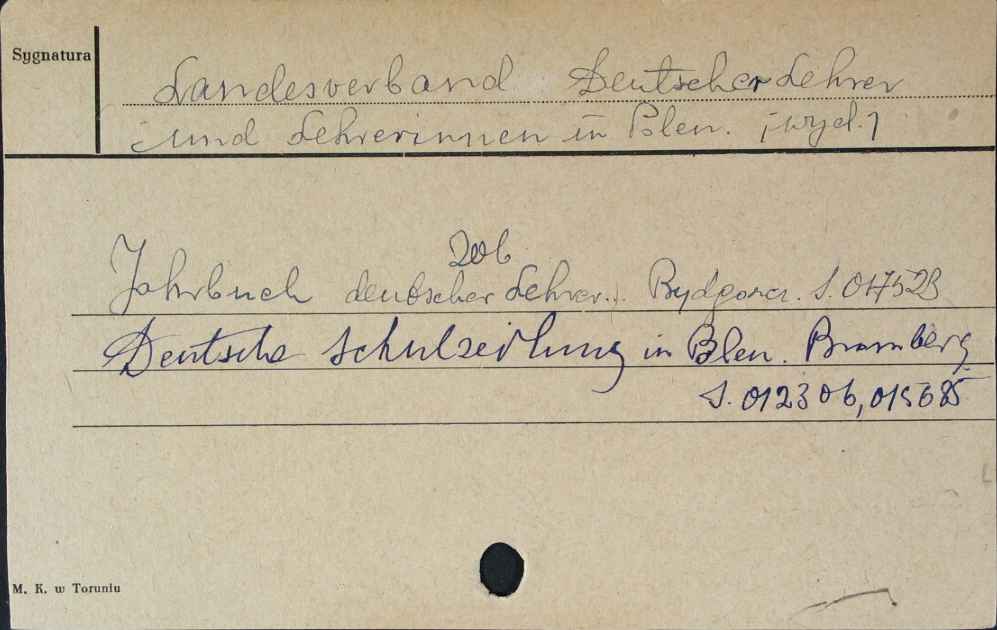 Sygnatura
Landesverband Deutscher Lehrer
und Lehrerinnen in Polen. [wyd.]
Zob
Jahrbuch deutscher Lehrer... Bydgoszcz. S. 017523
Deutsche Schulzeitung in Polen. Bromberg
S. 012306, 015685
M. K. w Toruniu